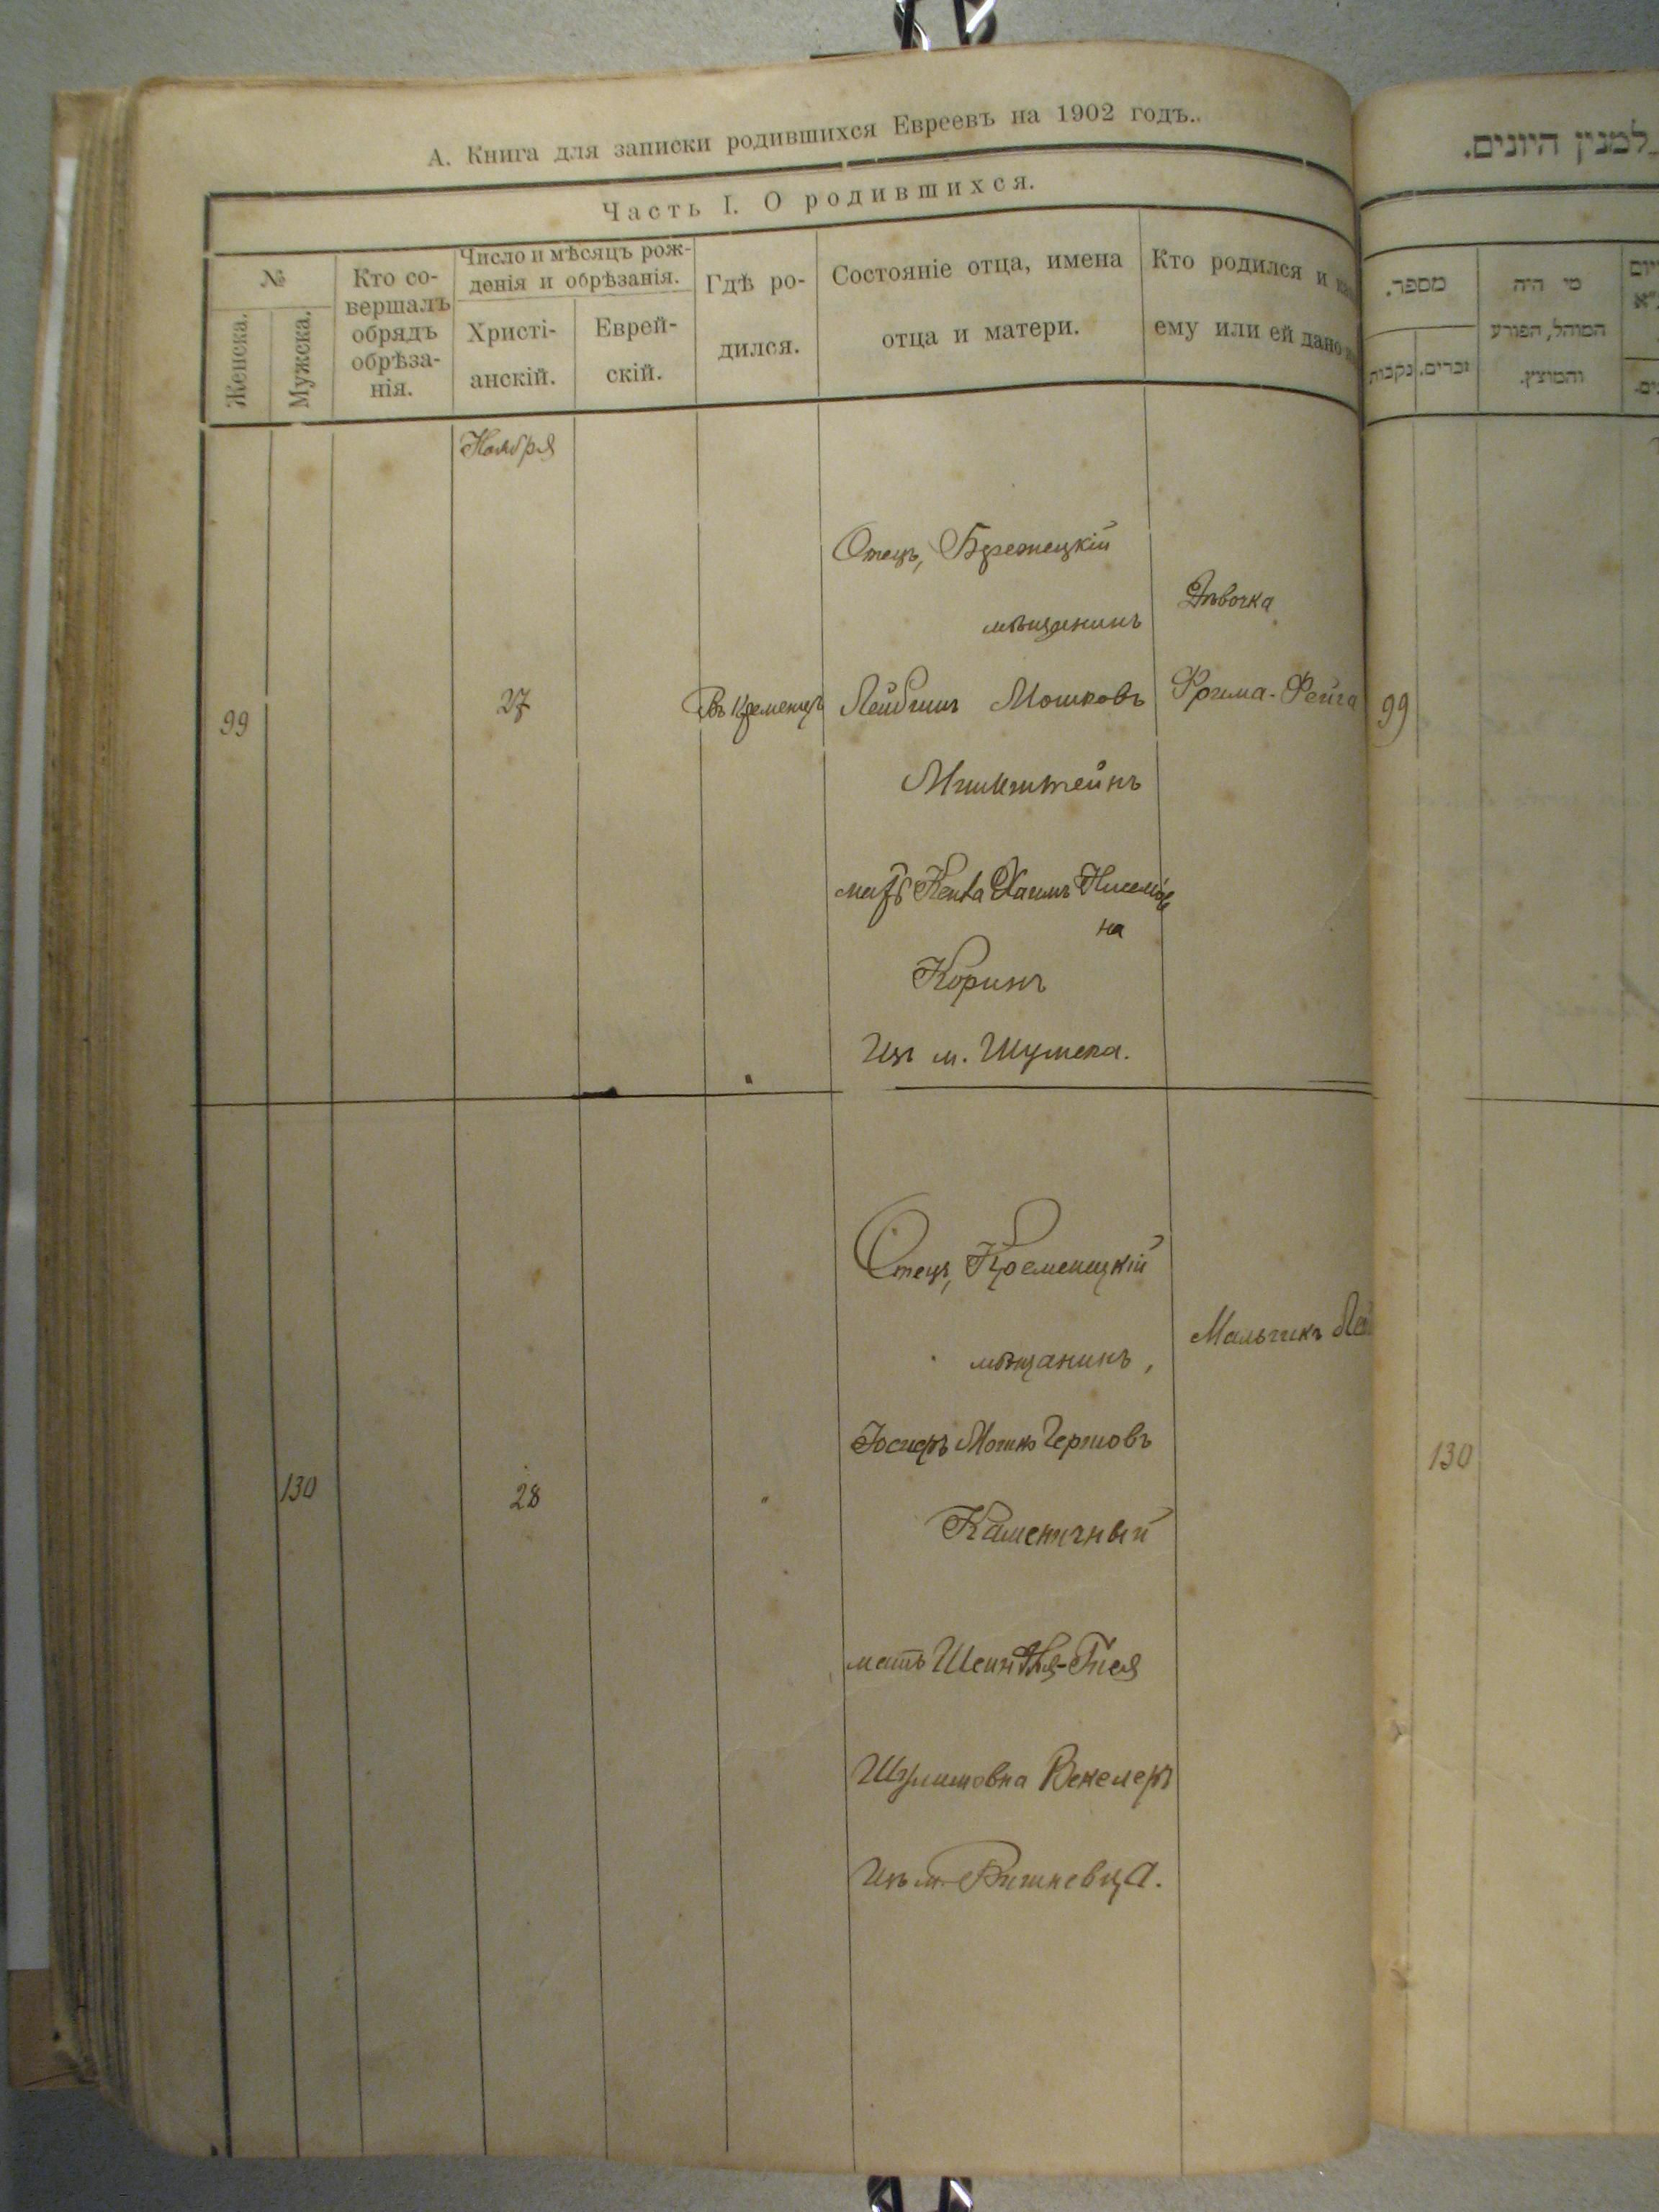 А. Книга для записки родившихся Евреевъ на 1902 годъ.
Часть I. О родившихся.
№
Женска.
Мужска.
Кто со-
вершалъ
обрядъ
обрѣза-
нія.
Число и мѣсяцъ рож-
денія и обрѣзанія.
Христі-
анскій.
Еврей-
скій.
Гдѣ ро-
дился.
Состояніе отца, имена
отца и матери.
Кто родился и
ему или ей дано
Ноября
99
27
Въ Кременцѣ
Отецъ, Бережецкій
мѣщанинъ
Лейбишъ Мошковъ
мать
на
Коринъ
Изъ м. Шумска.
Дѣвочка
Фрима-Фейга
130
28
"
Отецъ, Кременецкій
мѣщанинъ,
Мошко Гершовъ
Каменичный
мать
Шулимовна Векслеръ
Изъ м. Вишневца.
Мальчикъ
למנין היונים.
מספר.
זכרים.
נקבות
מי היה
המוהל, הפורע
והמוצץ.
99
130